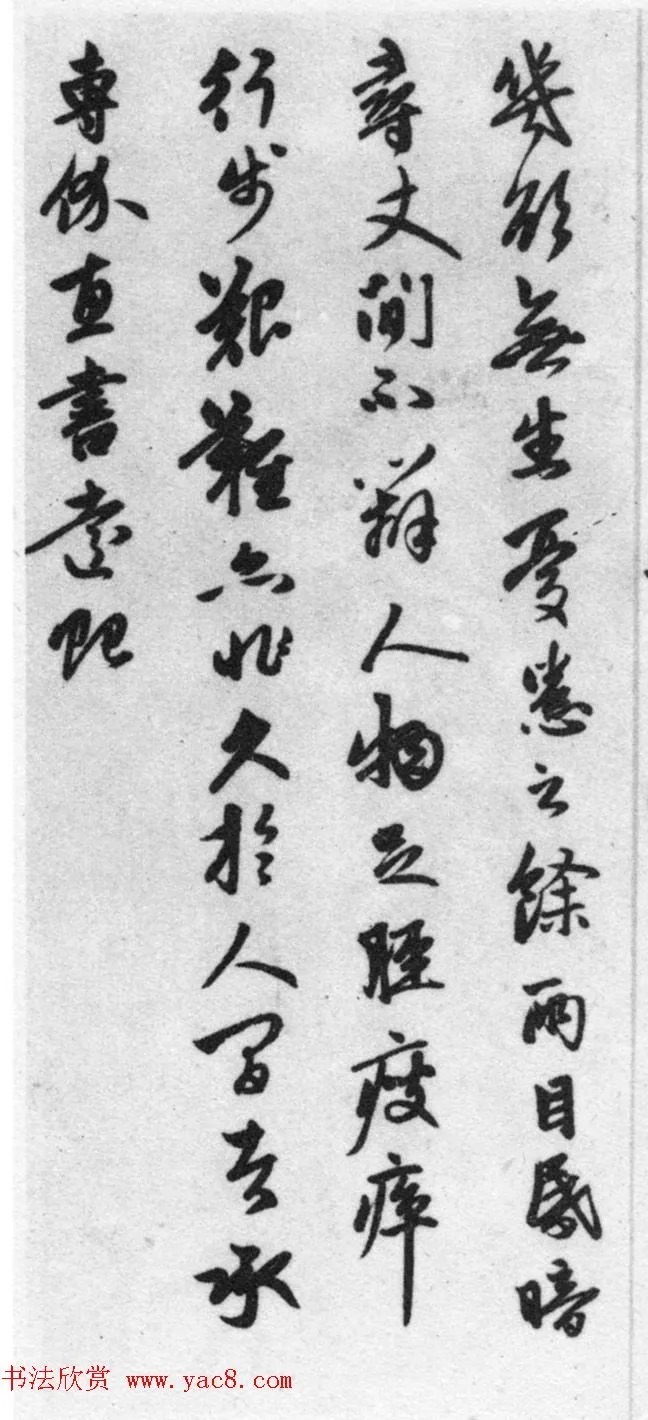 幾欲無生憂患之餘兩目昏暗
尋丈間不辨人物足脛瘁
行步艱難亦非久於人間者承
專价惠書遠貺
书法欣赏 www.yac8.com